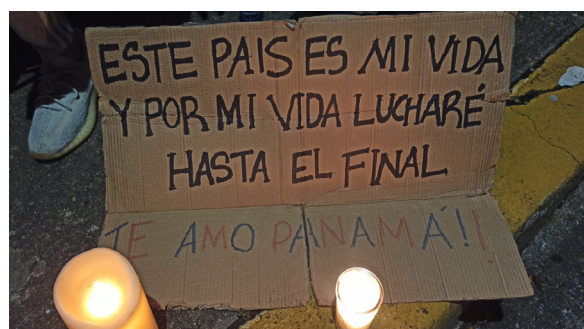 ESTE PAIS ES MI VIDA
Y POR MI VIDA LUCHARÉ
HASTA EL FINAL
TE AMO PANAMÁ!!